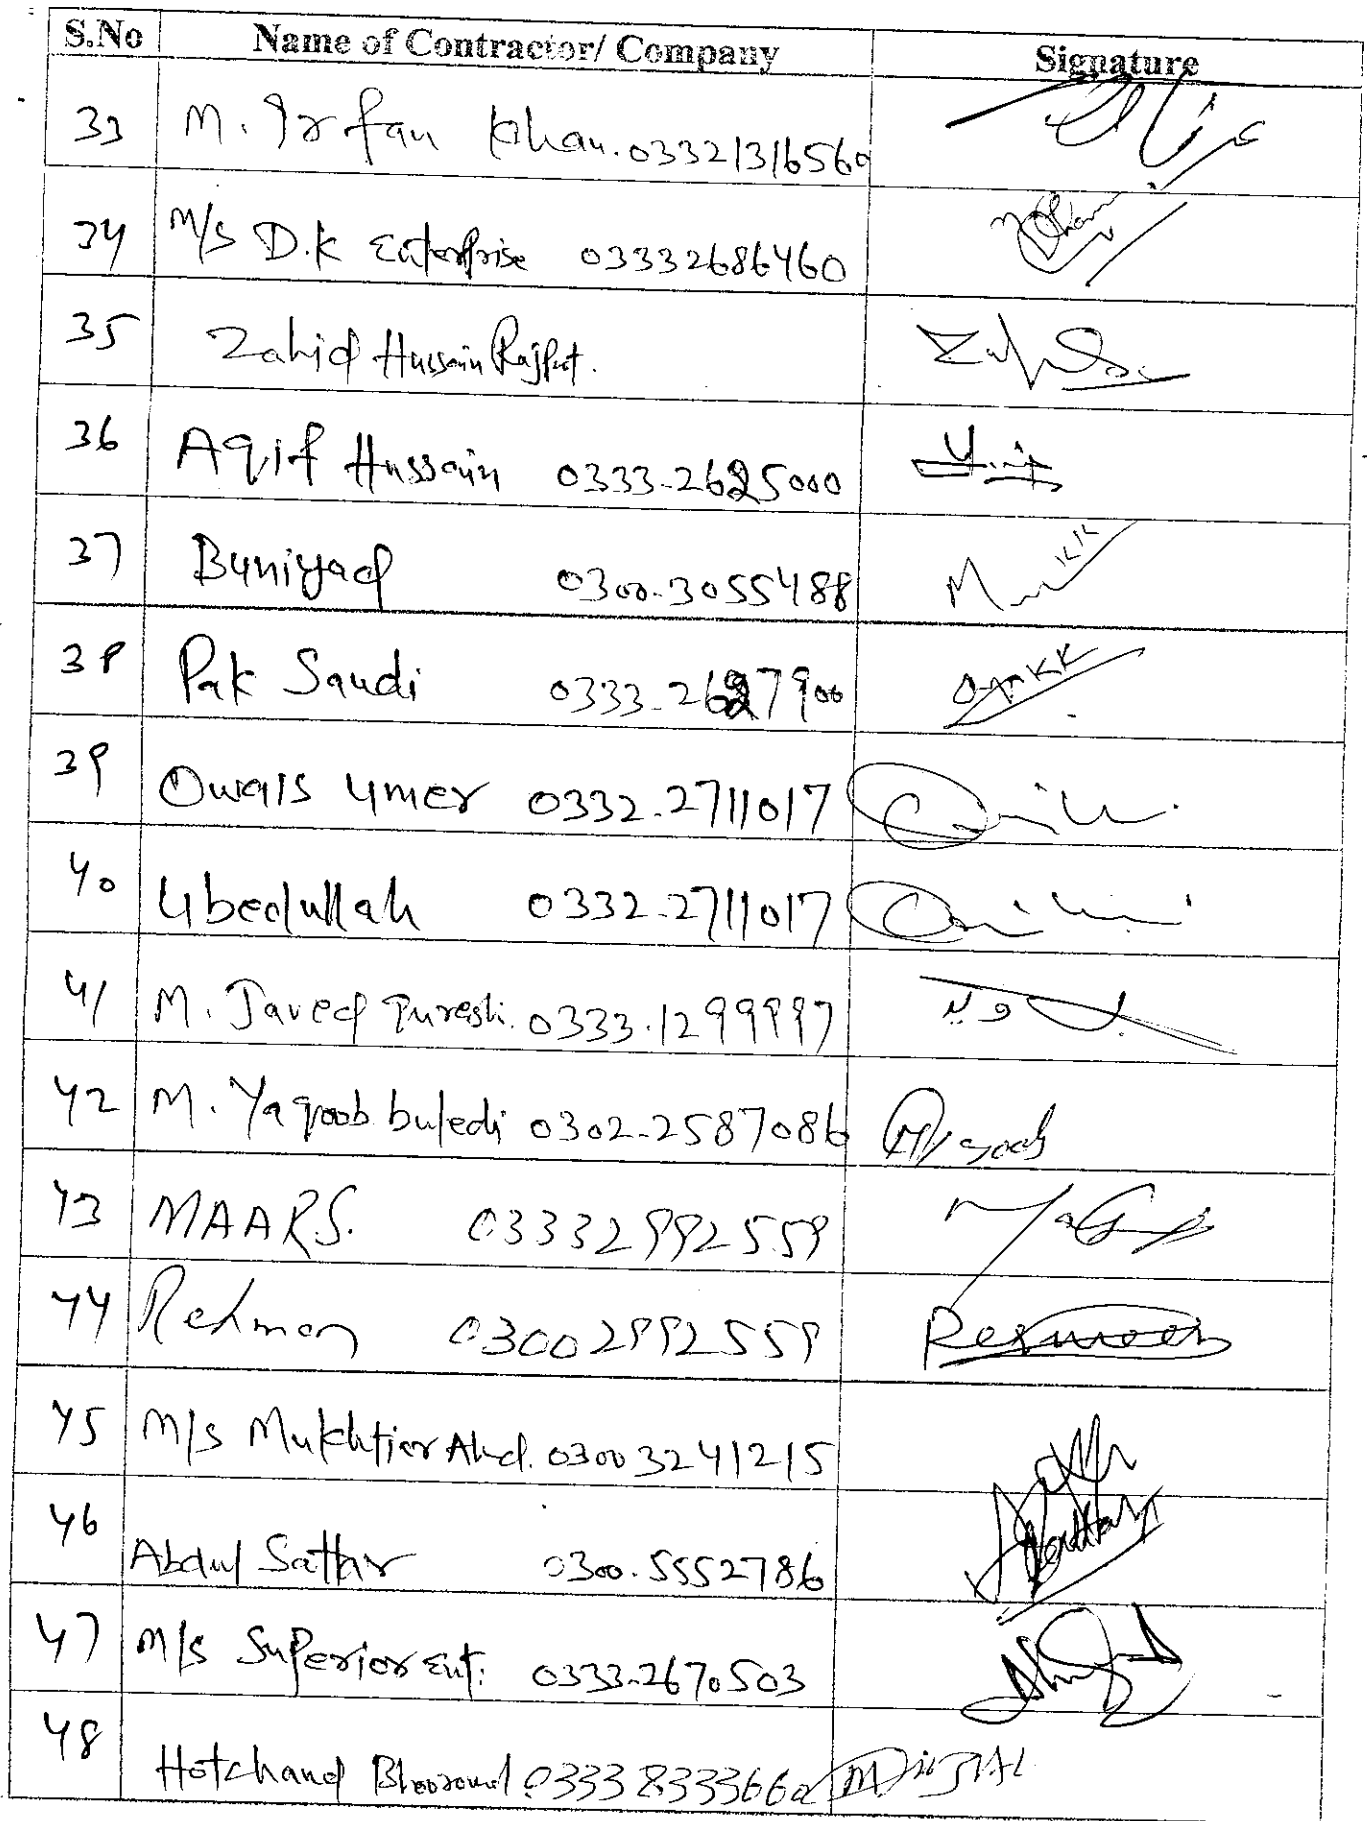 S.No Name of Contractor/ Company Signature
33 M. Irfan Khan. 03321316560
34 M/s D.K Enterprise 03332686460
35 Zahid Hussain Rajput.
36 Aqif Hussain 0333-2625000
37 Buniyad 0300-3055488
38 Pak Saudi 0333-2627900
39 Owais Umer 0332-2711017
40 Ubedullah 0332-2711017
41 M. Javeed Qureshi. 0333.1299997 جاويد
42 M. Yaqoob buledi 0302-2587086
43 MAARS. 03332992559
44 Rehman 03002992559
45 M/s Mukhtiar Ahd. 03003241215
46 Abdul Sattar 0300.5552786
47 M/s Superior Ent: 0333-2670503
48 Hotchand 03338333660